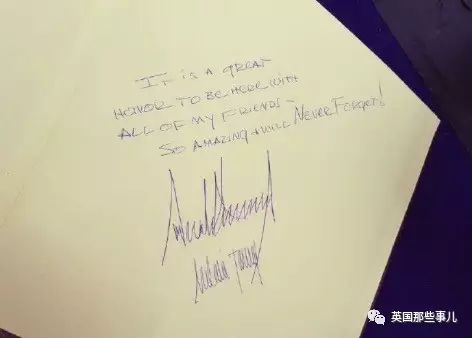 IT IS A GREAT
HONOR TO BE HERE WITH
ALL OF MY FRIENDS -
SO AMAZING + WILL NEVER FORGET!
英国那些事儿